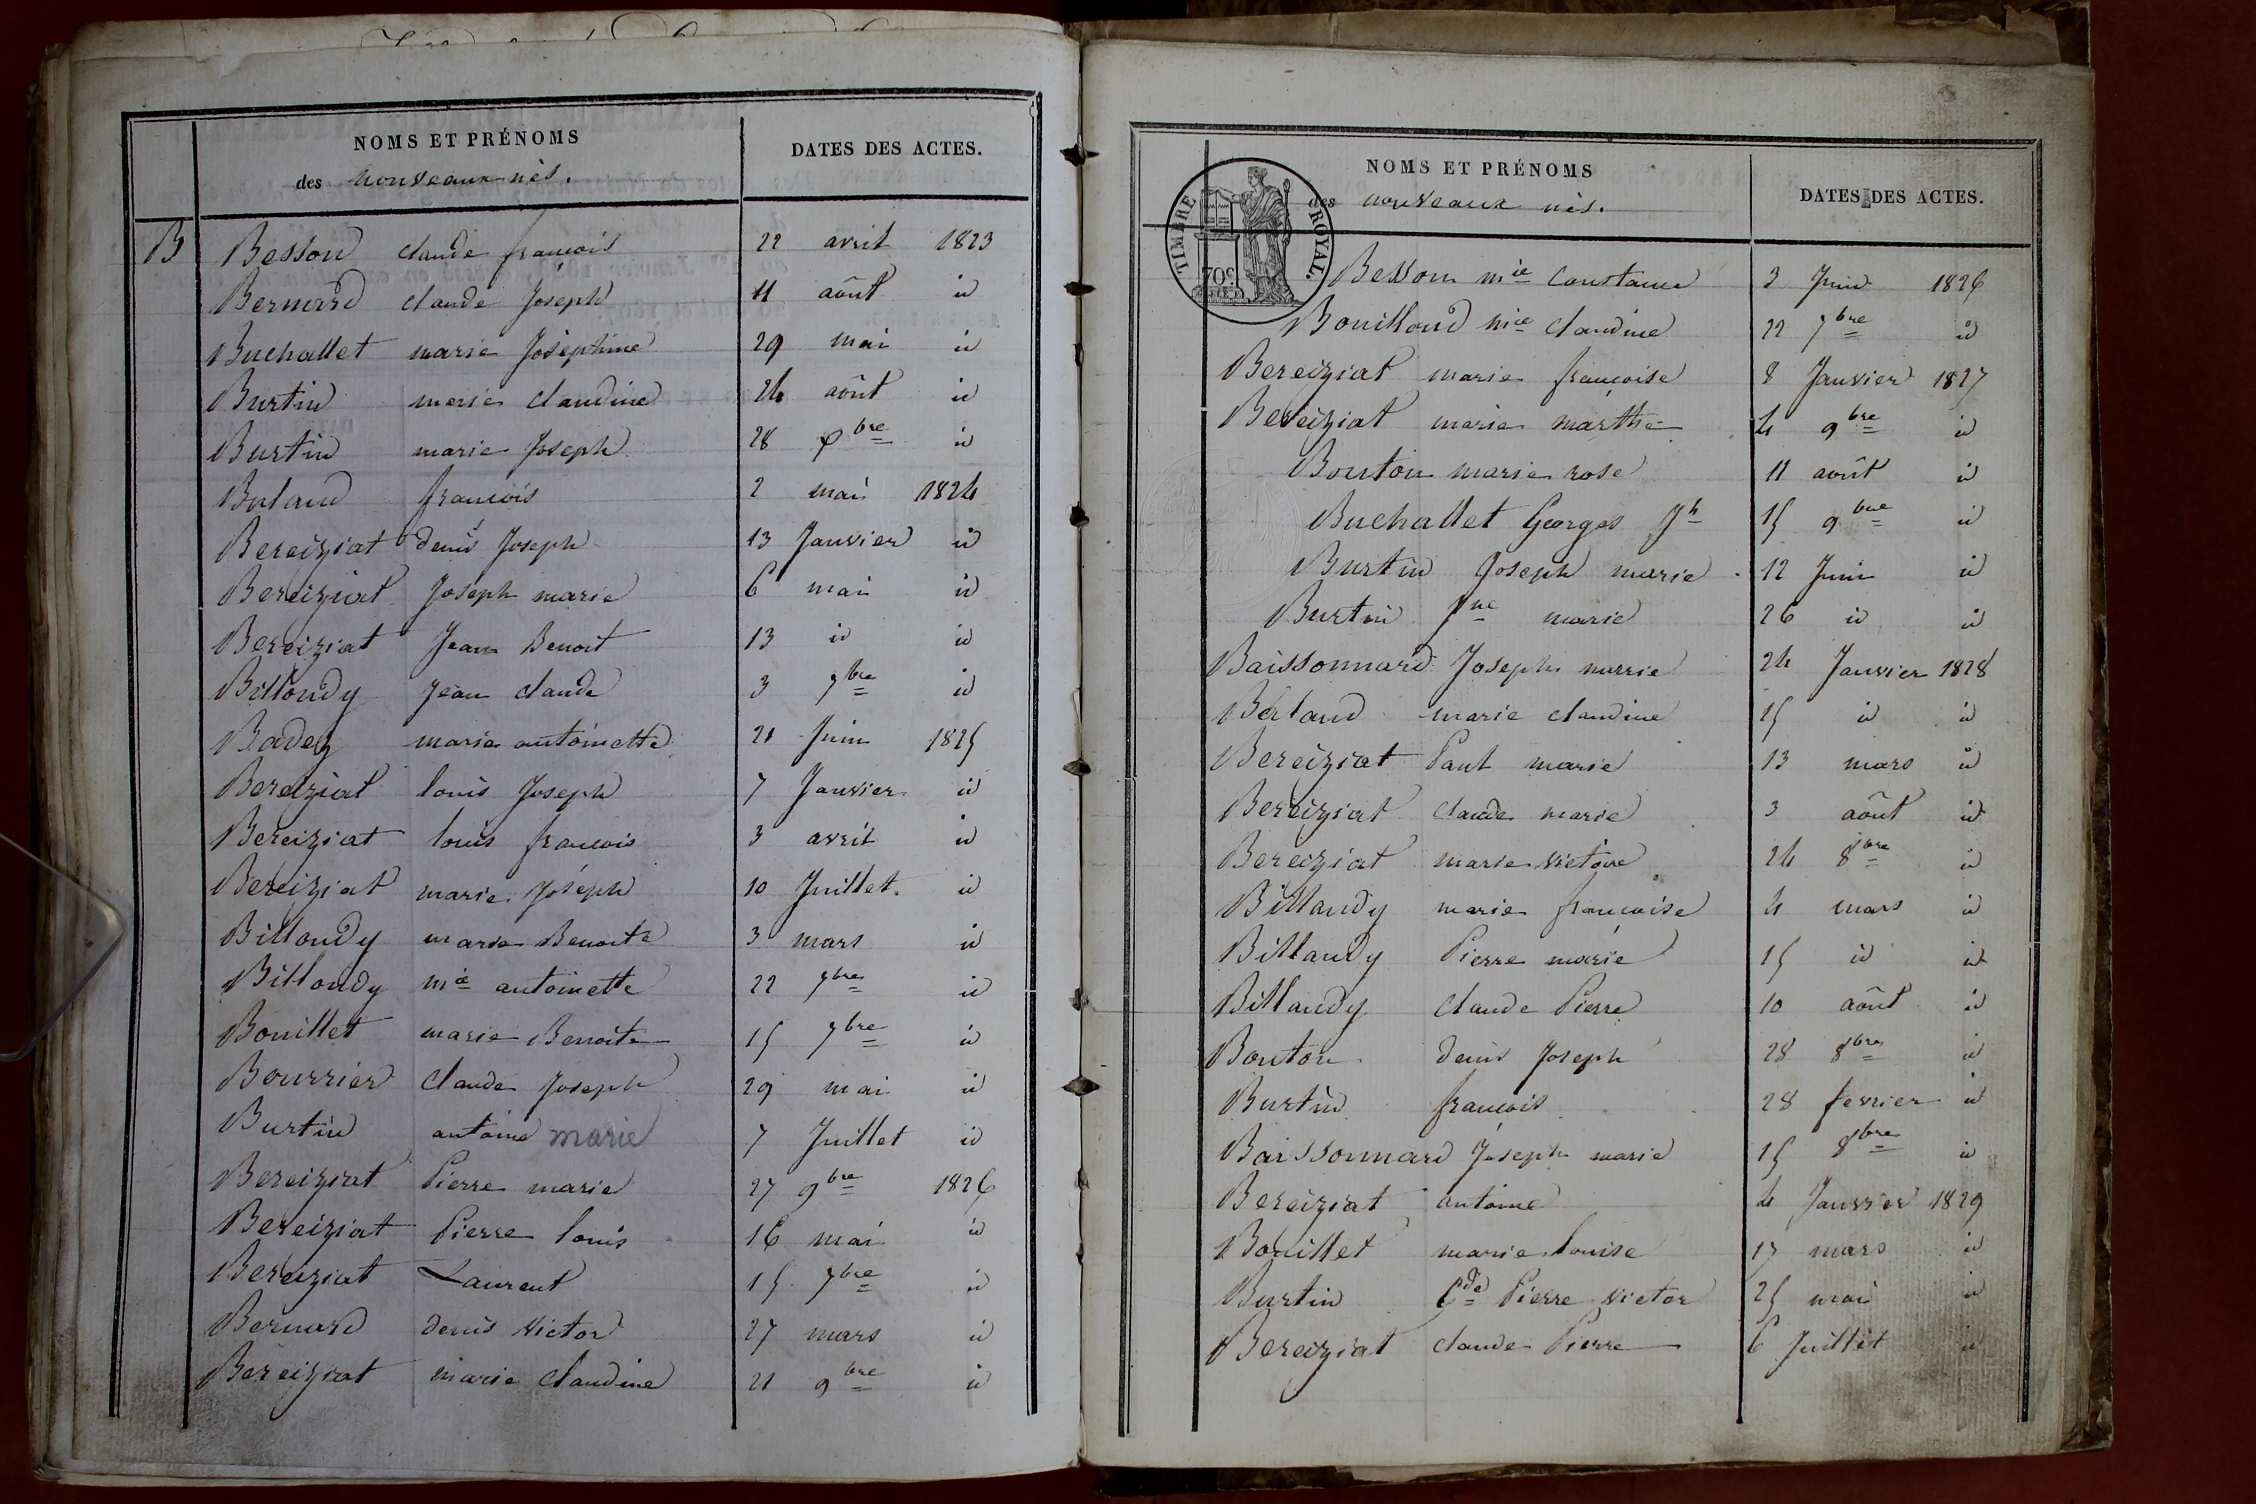 NOMS ET PRÉNOMS
des nouveaux nés.
DATES DES ACTES.
B Besson claude françois 22 avril 1823
Bernard claude Joseph 11 août id
Buchallet marie Joséphine 29 mai id
Burtin marie claudine 24 août id
Burtin marie Joseph 28 bre id
françois 2 mai 1824
Bereiziat denis Joseph 13 Janvier id
Bereiziat Joseph marie 6 mai id
Bereiziat Jean Benoit 13 id id
Billoudy Jean claude 3 7bre id
Badey marie antoinette 21 Juin 1825
Bereiziat louis Joseph 7 Janvier id
Bereiziat louis françois 3 avril id
Bereiziat marie Joseph 10 Juillet id
Billoudy marie Benoite 3 mars id
Billoudy mie antoinette 22 7bre id
Bouillet marie Benoite 15 7bre id
Bourrier claude Joseph 29 mai id
Burtin antoine marie 7 Juillet id
Bereiziat Pierre marie 27 9bre 1826
Bereiziat Pierre louis 16 mai id
Bereiziat Laurent 15 7bre id
Bernard denis victor 27 mars id
Bereiziat marie claudine 21 9bre id
TIMBRE ROYAL.
70c
NOMS ET PRÉNOMS
des nouveaux nés.
DATES DES ACTES.
Besson mie constance 3 Juin 1826
Bouilloud mie claudine 22 7bre id
Bereiziat marie françoise 8 Janvier 1827
Bereiziat marie marthe 4 9bre id
Bouton marie rose 11 août id
Buchallet Georges Jh 15 9bre id
Burtin Joseph marie 12 Juin id
Burtin Jne marie 26 id id
Baissonnard Joseph marie 24 Janvier 1828
Berland marie claudine 15 id id
Bereiziat Paul marie 13 mars id
Bereiziat claude marie 3 août id
Bereiziat marie victoire 24 8bre id
Billaudy marie françoise 4 mars id
Billaudy Pierre marie 15 id id
Billaudy claude Pierre 10 août id
Bouton denis Joseph 28 8bre id
Burtin françois 28 fevrier id
Baissonnard Joseph marie 15 8bre id
Bereiziat antoine 4 Janvier 1829
Bouillet marie louise 17 mars id
Burtin Cde Pierre victor 25 mai id
Bereiziat claude Pierre 6 Juillet id